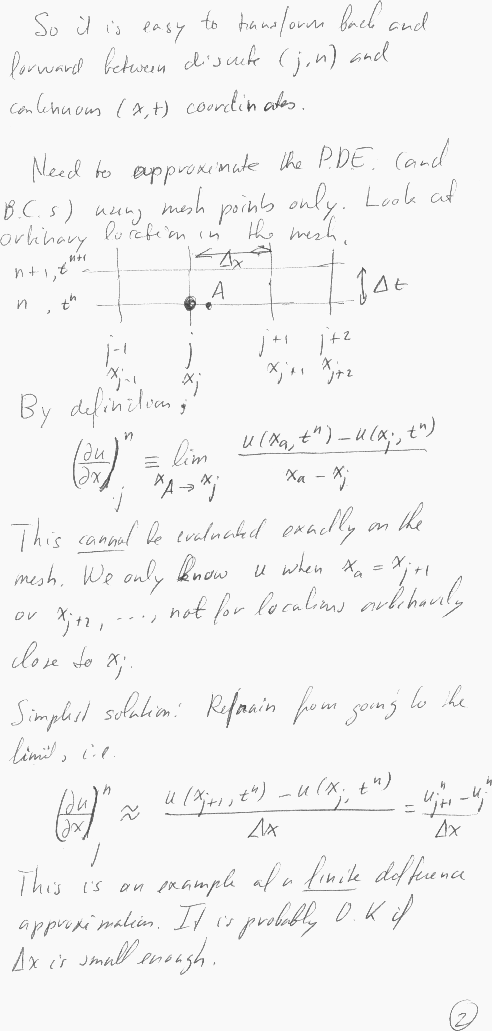 So it is easy to transform back and
forward between discrete (j,n) and
continuous (x,t) coordinates.
Need to approximate the P.D.E. (and
B.C.s) using mesh points only. Look at
ordinary location in the mesh.
Δx
n+1, t^{n+1}
n , t^n
A
Δt
j-1 j j+1 j+2
x_{j-1} x_j x_{j+1} x_{j+2}
By definition,
(∂u/∂x)_j^n ≡ lim_{x_A→x_j} (u(x_a, t^n) - u(x_j, t^n))/(x_a - x_j)
This cannot be evaluated exactly on the
mesh. We only know u when x_a = x_{j+1}
or x_{j+2}, ...., not for locations arbitrarily
close to x_j.
Simplest solution: Refrain from going to the
limit, i.e.
(∂u/∂x)_j^n ≈ (u(x_{j+1}, t^n) - u(x_j, t^n))/Δx = (u_{j+1}^n - u_j^n)/Δx
This is an example of a finite difference
approximation. It is probably O.K if
Δx is small enough.
2